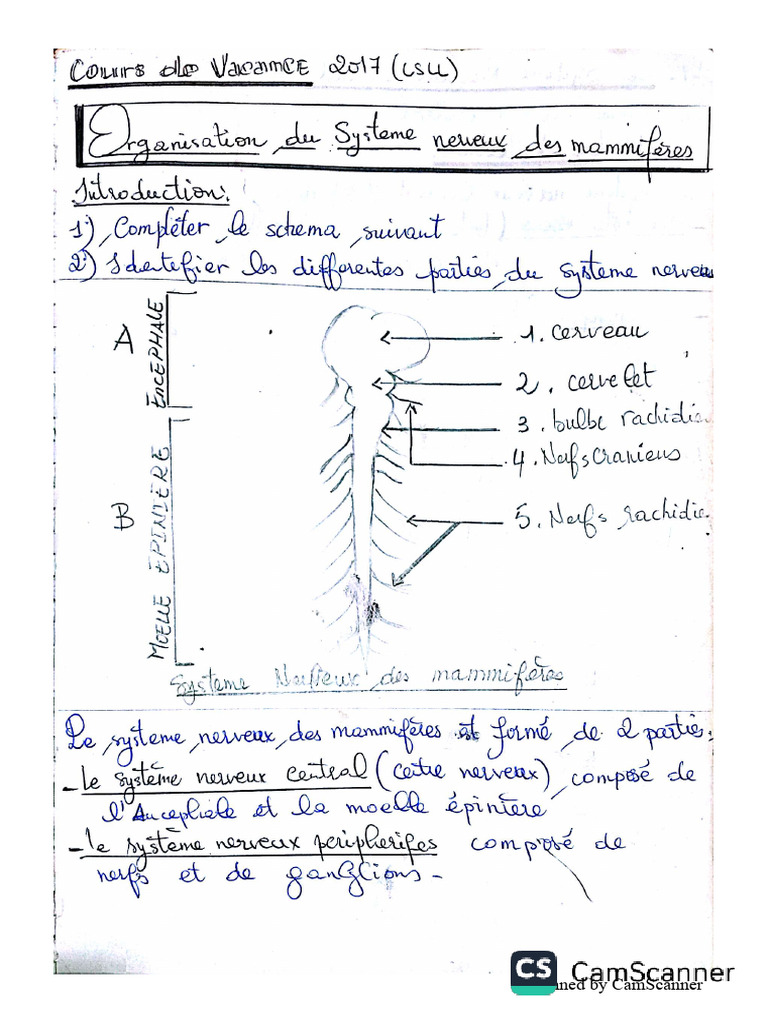 Cours de Vacance 2017 (CSU)
Organisation du Système nerveux des mammifères
Introduction:
1°) Compléter le schema suivant
2°) Identefier les differentes parties du système nerveu
A
ENCEPHALE
1. cerveau
2. cervelet
3. bulbe rachidie
4. Nerfs craniens
B
MOELLE ÉPINIÈRE
5. Nerfs rachidie
Systeme Nerveux des mammifères
Le système nerveux des mammifères est formé de 2 parties:
- le système nerveux central (centre nerveux) composé de
l'Encephale et la moelle épinière
- le système nerveux peripherifes composé de
nerfs et de ganglions-
CS CamScanner
nned by CamScanner